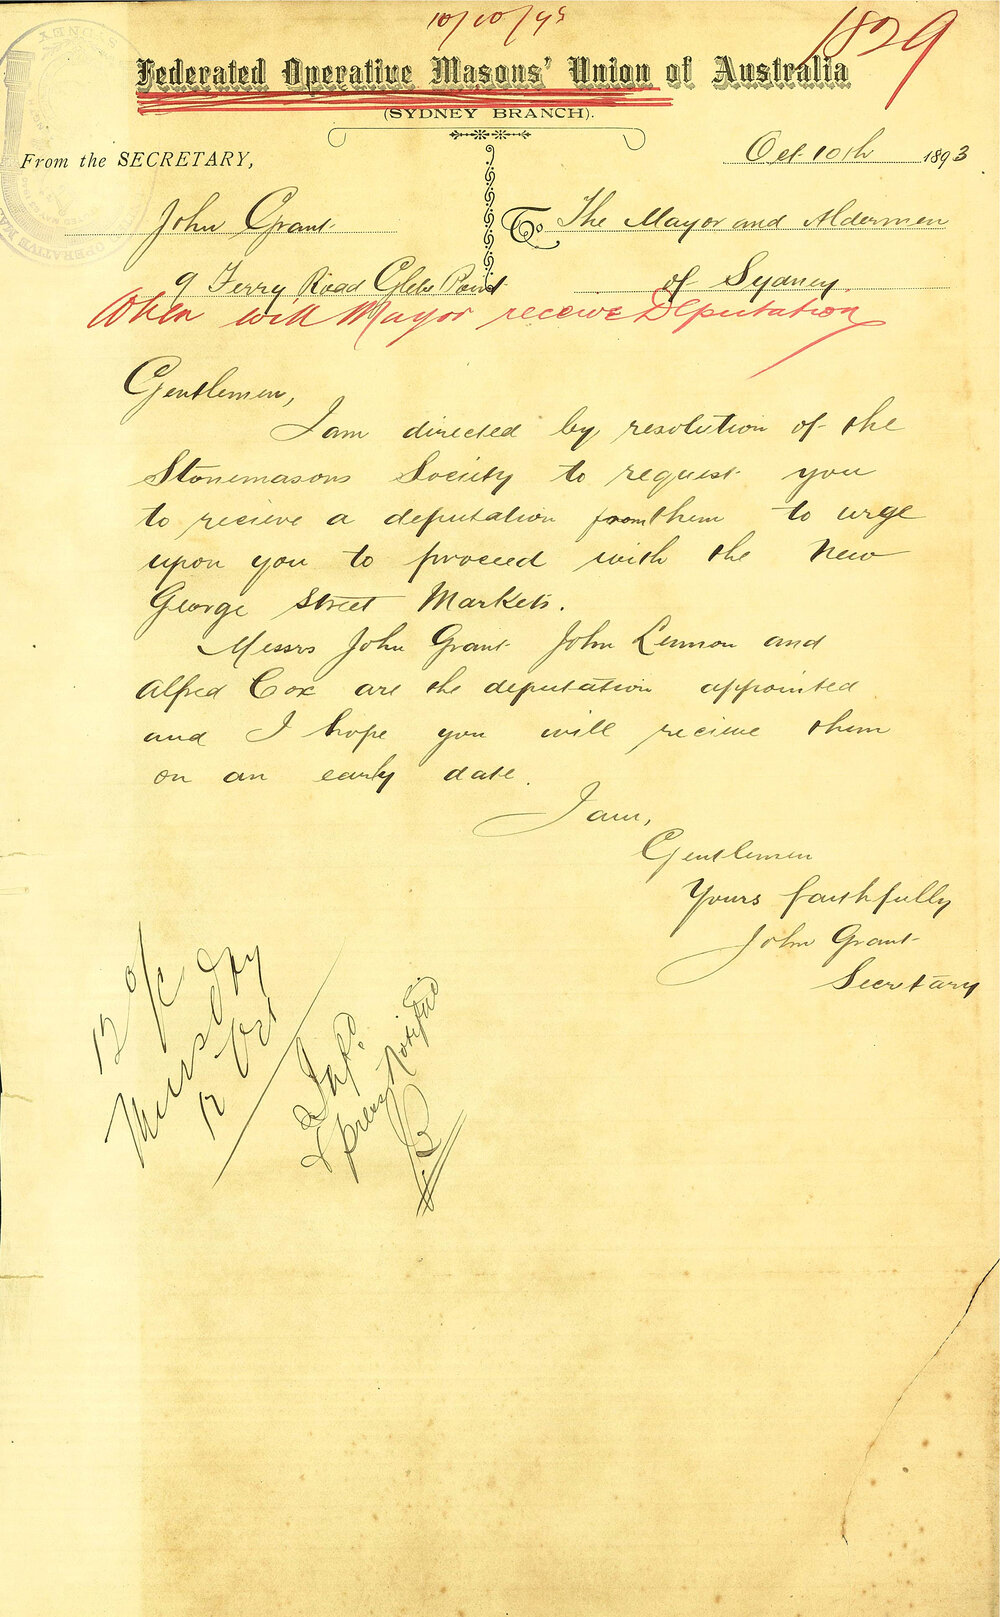 10/10/93
1829
Federated Operative Masons' Union of Australia
(SYDNEY BRANCH).
From the SECRETARY,
Oct 10th 1893
John Grant
9 Ferry Road Glebe Point
To The Mayor and Aldermen
of Sydney.
When will Mayor receive Deputation
Gentlemen,
I am directed by resolution of the
Stonemasons Society to request you
to recieve a deputation from them to urge
upon you to proceed with the New
George Street Markets.
Messrs John Grant John Lennon and
Alfred Cox are the deputation appointed
and I hope you will recieve them
on an early date.
I am,
Gentlemen
Yours faithfully
John Grant
Secretary
12 o/c
Thursday
12 Oct
Notified
SYDNEY
OPERATIVE MAS